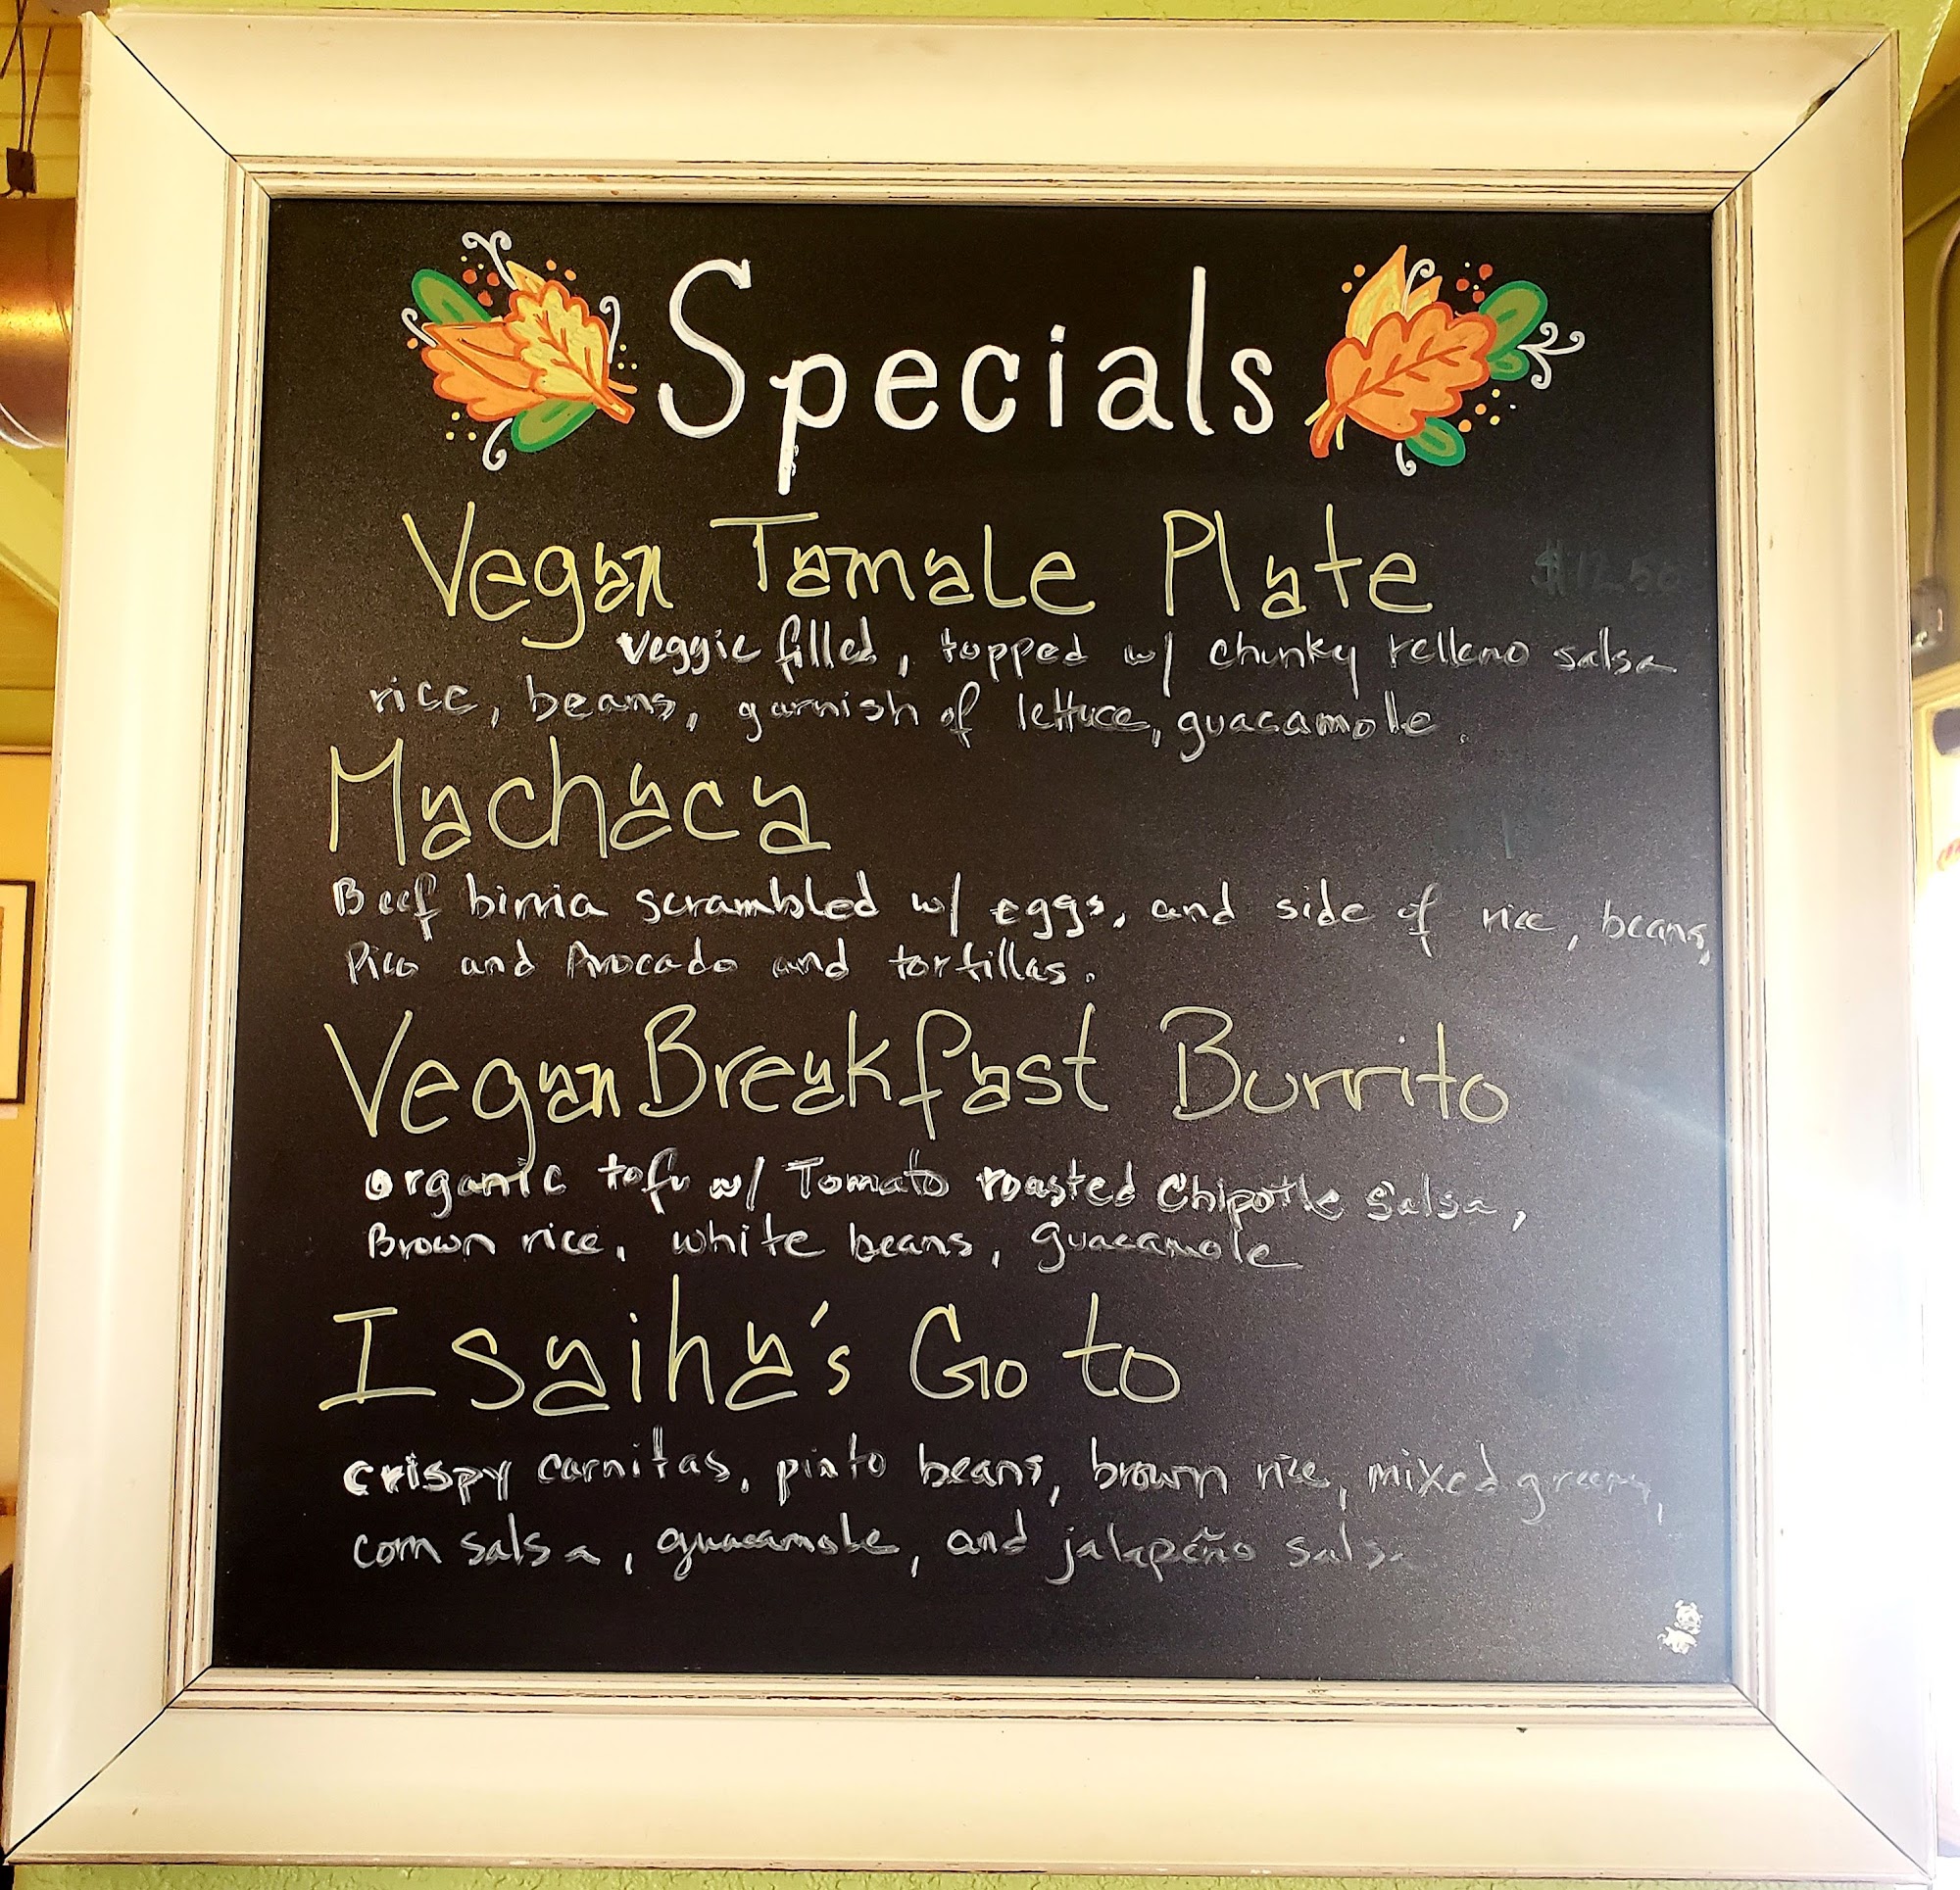 Specials
Vegan Tamale Plate $12.50
veggie filled, topped w/ chunky relleno salsa
rice, beans, garnish of lettuce, guacamole.
Machaca
Beef birria scrambled w/ eggs, and side of rice, beans,
Pico and Avocado and tortillas.
Vegan Breakfast Burrito
organic tofu w/ Tomato roasted Chipotle Salsa,
Brown rice, white beans, guacamole
Isaiha's Go to
crispy carnitas, pinto beans, brown rice, mixed greens,
corn salsa, guacamole, and jalapeño salsa